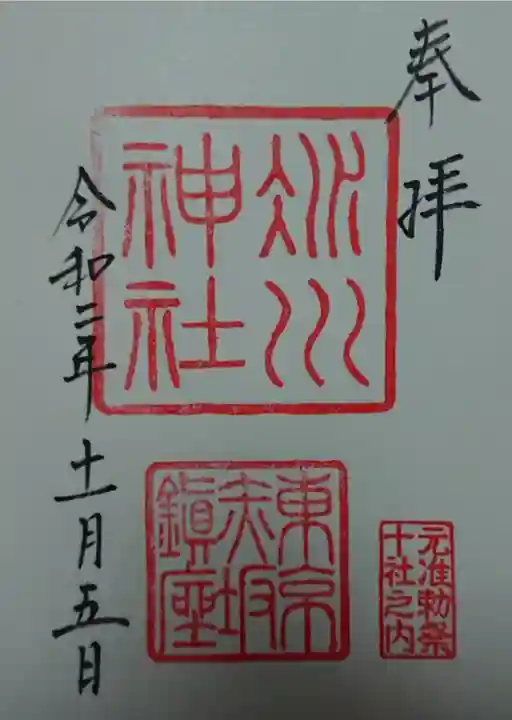 奉拝
氷川
神社
東京
赤坂
鎮座
元准勅祭
十社之内
令和二年十一月五日